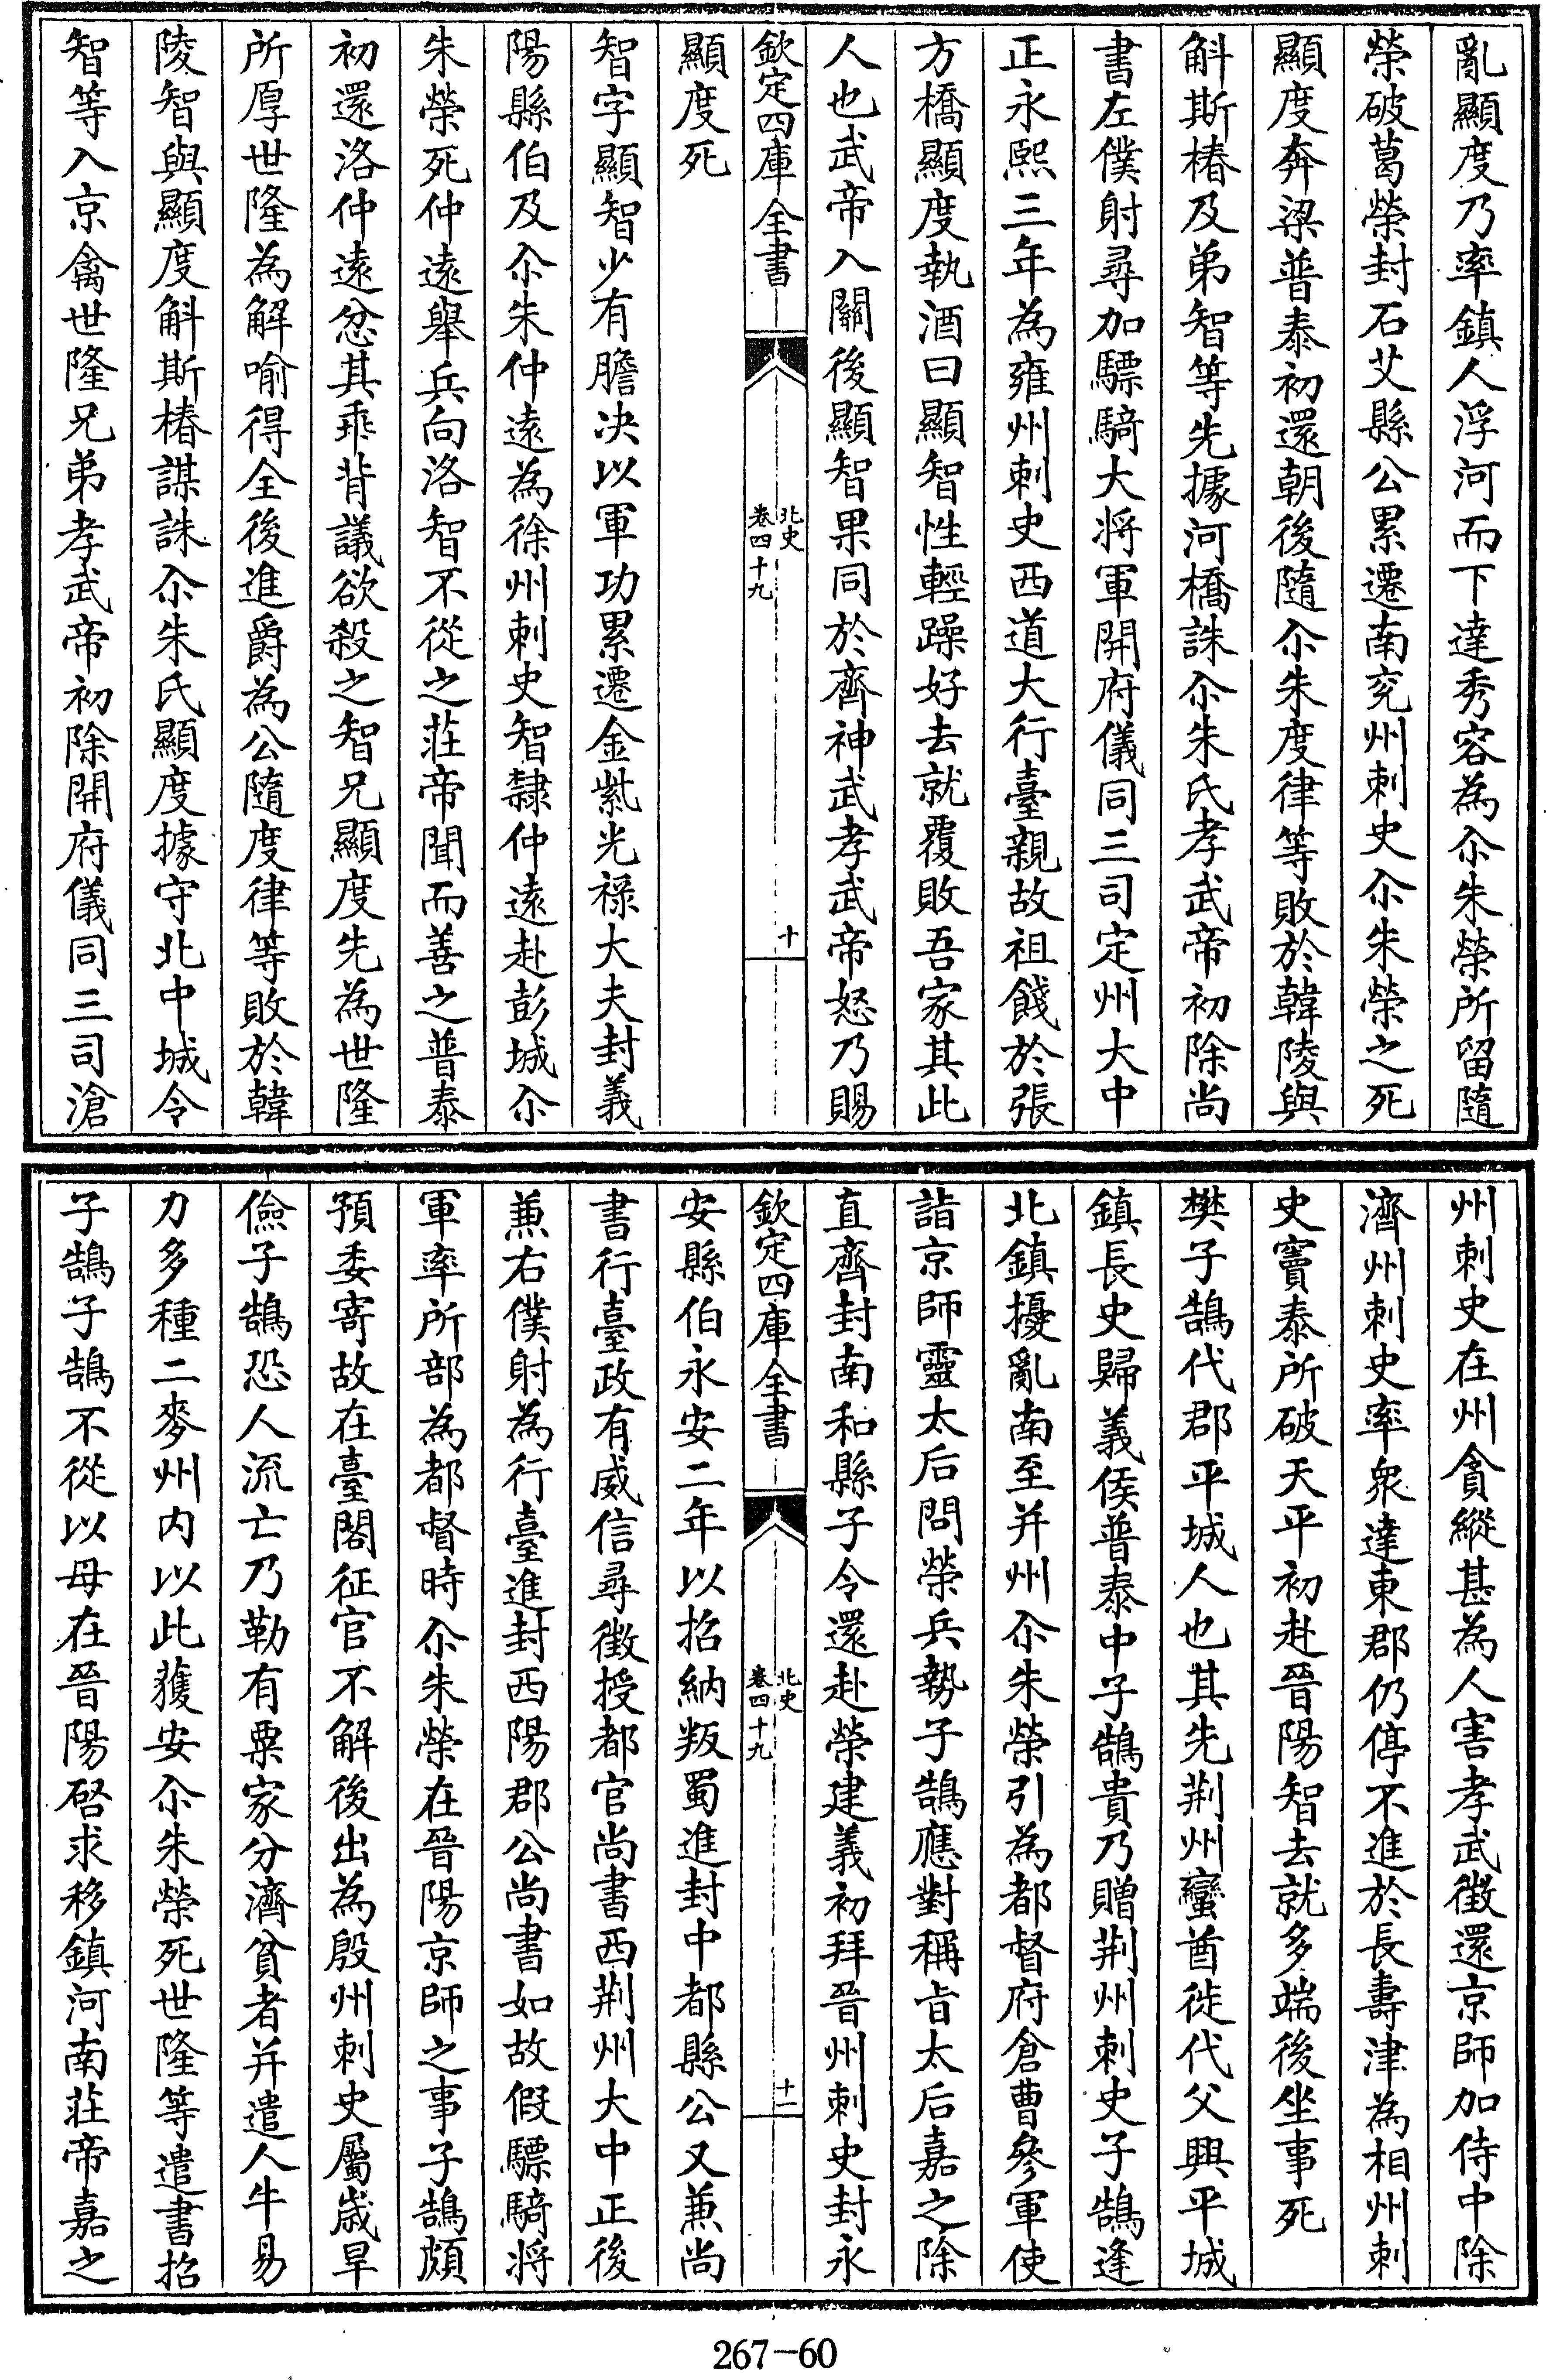 亂顯度乃率鎮人浮河而下達秀容為尒朱榮所留隨
榮破葛榮封石艾縣公累遷南兖州刺史尒朱榮之死
顯度奔梁普泰初還朝後隨尒朱度律等敗於韓陵與
斛斯椿及弟智等先據河橋誅尒朱氏孝武帝初除尚
書左僕射尋加驃騎大将軍開府儀同三司定州大中
正永熙三年為雍州刺史西道大行臺親故祖餞於張
方橋顯度執酒曰顯智性輕躁好去就覆敗吾家其此
人也武帝入關後顯智果同於齊神武孝武帝怒乃賜
欽定四庫全書
北史
卷四十九
十
顯度死
智字顯智少有膽决以軍功累遷金紫光祿大夫封義
陽縣伯及尒朱仲遠為徐州刺史智隸仲遠赴彭城尒
朱榮死仲遠舉兵向洛智不從之莊帝聞而善之普泰
初還洛仲遠忿其乖背議欲殺之智兄顯度先為世隆
所厚世隆為解喻得全後進爵為公隨度律等敗於韓
陵智與顯度斛斯椿謀誅尒朱氏顯度據守北中城令
智等入京禽世隆兄弟孝武帝初除開府儀同三司滄
州刺史在州貪縱甚為人害孝武徵還京師加侍中除
濟州刺史率衆達東郡仍停不進於長壽津為相州刺
史竇泰所破天平初赴晉陽智去就多端後坐事死
樊子鵠代郡平城人也其先荆州蠻酋徙代父興平城
鎮長史歸義侯普泰中子鵠貴乃贈荆州刺史子鵠逢
北鎮擾亂南至并州尒朱榮引為都督府倉曹參軍使
詣京師靈太后問榮兵勢子鵠應對稱旨太后嘉之除
直齊封南和縣子令還赴榮建義初拜晉州刺史封永
欽定四庫全書
北史
卷四十九
十一
安縣伯永安二年以招納叛蜀進封中都縣公又兼尚
書行臺政有威信尋徵授都官尚書西荆州大中正後
兼右僕射為行臺進封西陽郡公尚書如故假驃騎将
軍率所部為都督時尒朱榮在晉陽京師之事子鵠頗
預委寄故在臺閣征官不解後出為殷州刺史屬歲旱
儉子鵠恐人流亡乃勒有粟家分濟貧者并遣人牛易
力多種二麥州内以此獲安尒朱榮死世隆等遣書招
子鵠子鵠不從以母在晉陽啓求移鎮河南莊帝嘉之
267-60